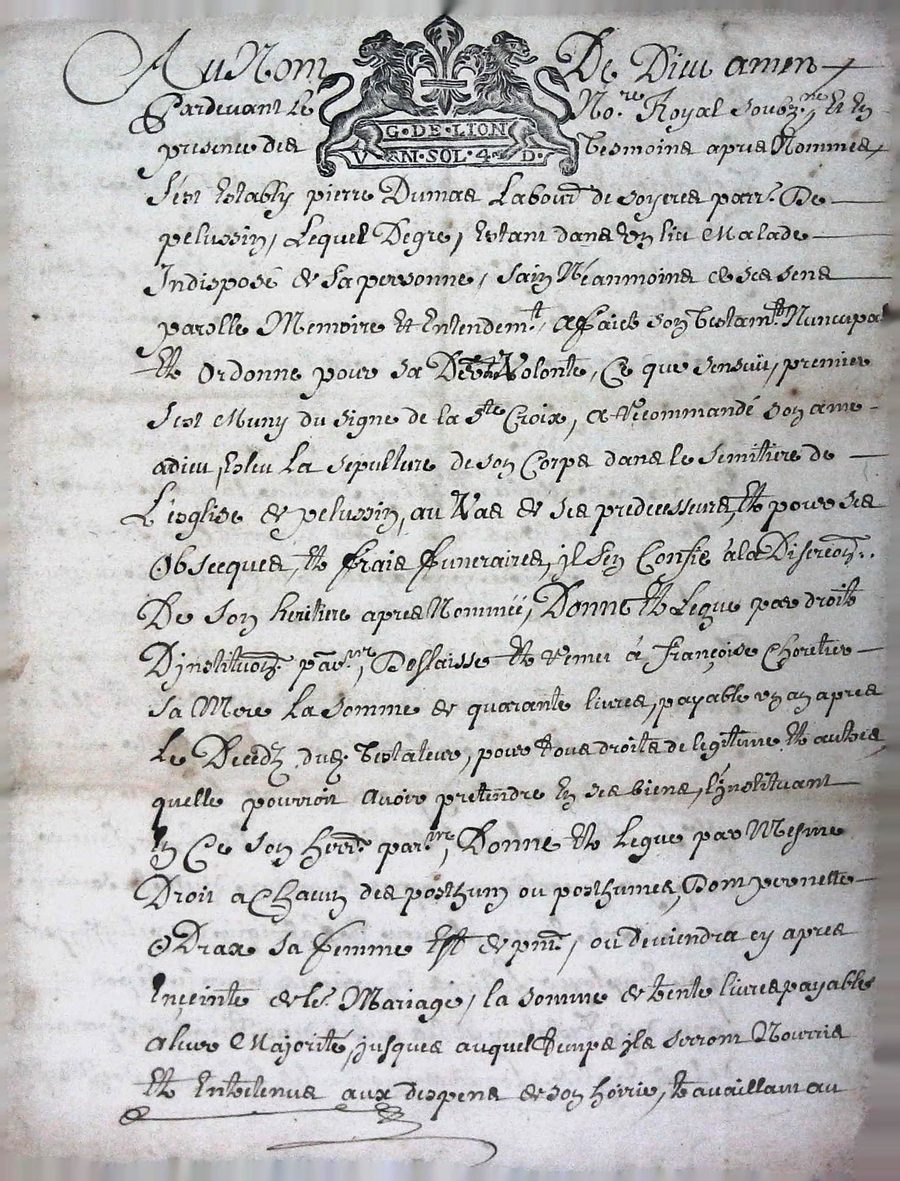 Au Nom De Dieu amen
Pardevant Le No.re Royal soubz.ne, Et En
presence des tesmoins apres Nommes
G·DE·LION
VN·SOL·4·D·
s'est Estably pierre Dumas Labour.r de soyeres parr. De
pelussin, Lequel Degre, Estant dans un lit Malade
Indisposé de sa personne, sain Néanmoins de ses sens
parolle Memoire Et Entendem.t, a faict son testam.t Nuncupa.
Et Ordonne pour sa Volonté, Ce que sensuit, premier
sest Muny du signe de la s.te Croix, a recommandé son ame
a dieu, Esleu La sepulture de son Corps dans le semitiere de
L'esglise de pelussin, au Vas de ses predecesseurs, Et pour ses
Obsecques, Et frais funeraires, jl sen Confie à la Discreon..
De son heritiere apres Nommée, Donne Et Legue par droit
D'jnstituon par.re, Deslaisse Et remet à françoise Choretier
sa Mere La somme de quarante livres, payable un an apres
Le Decedz dud. testateur, pour tous droits de legitime Et autres,
quelle pourroit avoir pretendre En ses biens, L'jnstituant
En Ce son herre. par.re, Donne Et Legue par Mesme
Droit a Chacun des posthum ou posthumes, Dont pernette
Odrax sa femme Est de pnt, ou deviendra cy apres
Enceinte de le. Mariage, la somme de trente livres payables
a leur Majorité, jusques auquel temps jls seront Nourris
Et Entretenus aux despens de son hoirie, travaillant au